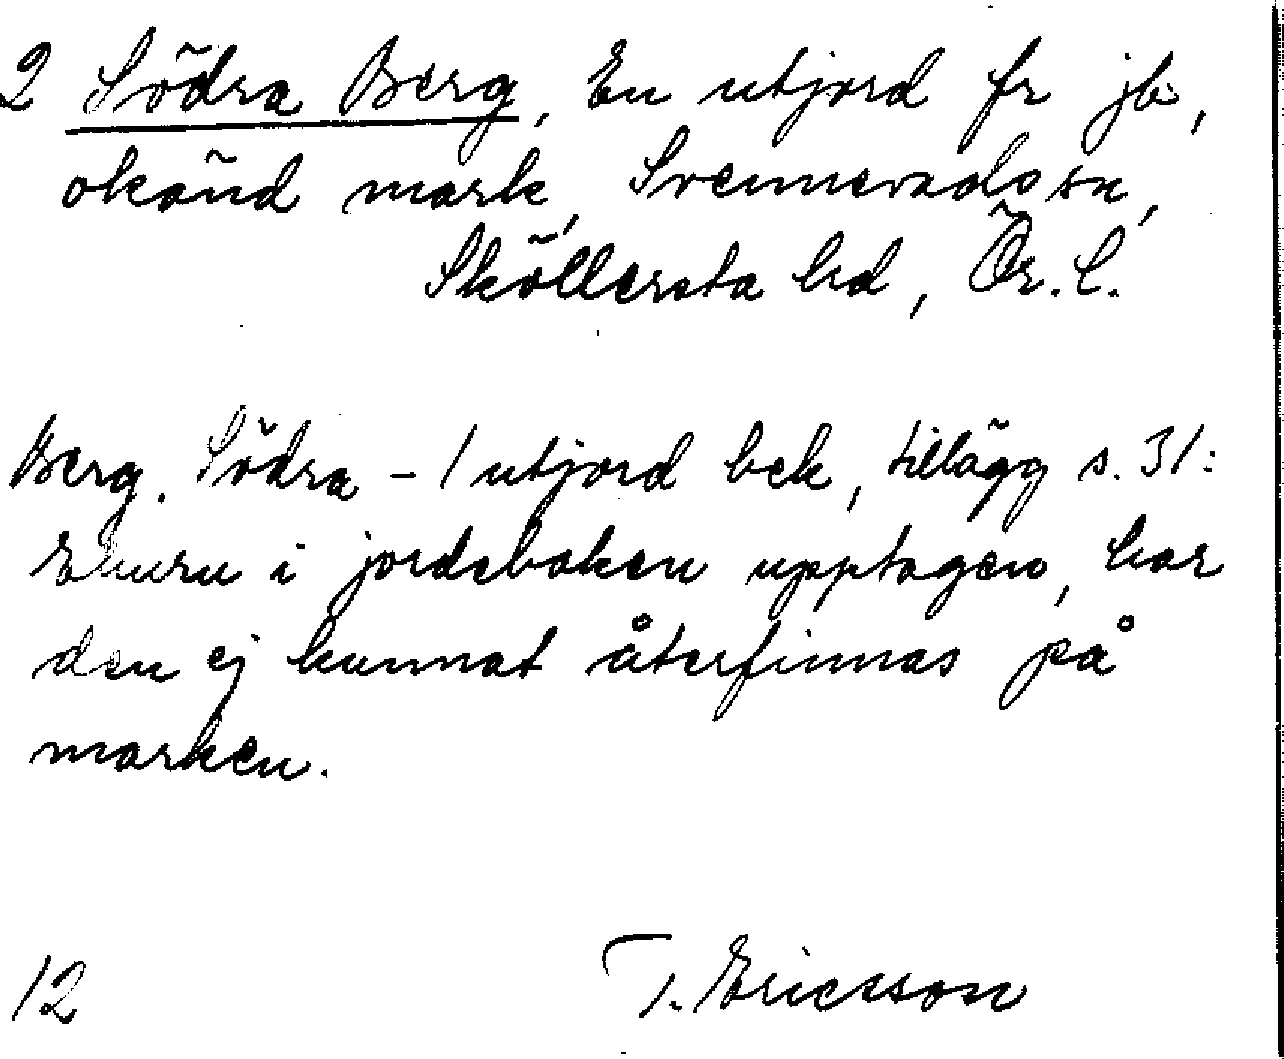 2 Södra Berg, En utjord fr jb,
okänd mark, Svennevads sn,
Sköllersta hd, Ör. l.
Berg. Södra - 1 utjord bek, tillägg s. 31:
Ehuru i jordeboken upptagen, har
den ej kunnat återfinnas på
marken.
12 T. Ericsson